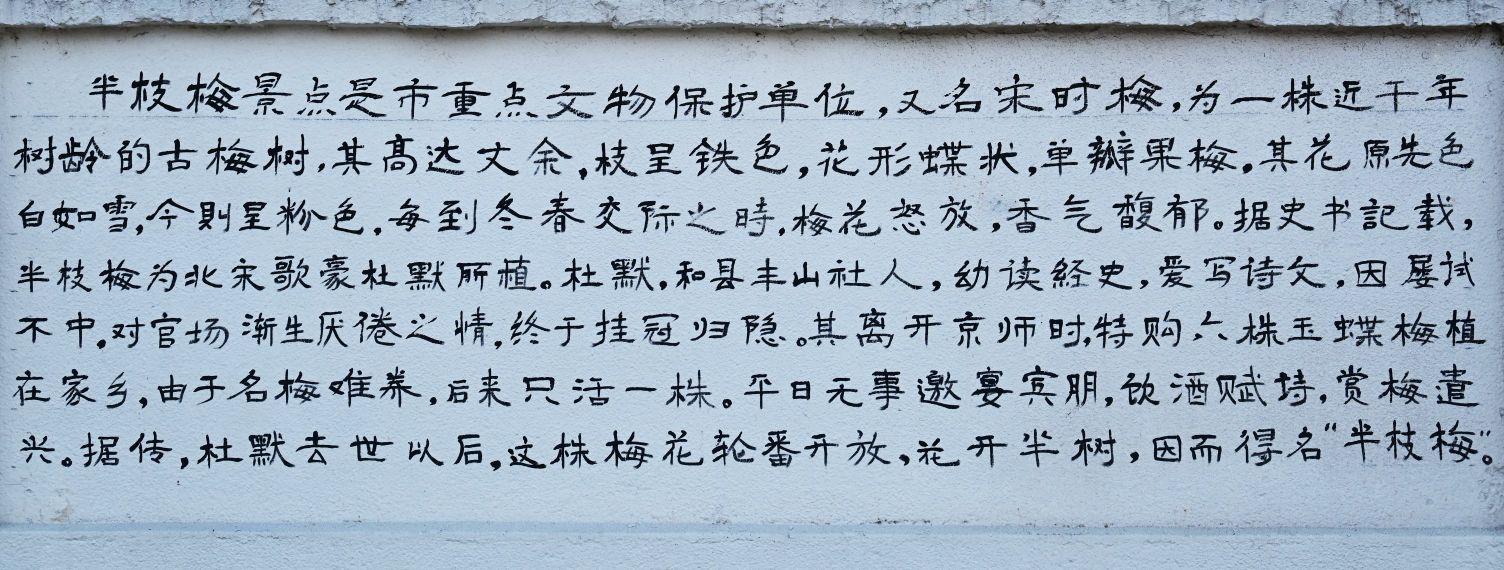 半枝梅景点是市重点文物保护单位,又名宋时梅,为一株近千年
树龄的古梅树,其高达丈余,枝呈铁色,花形蝶状,单瓣果梅。其花原先色
白如雪,今則呈粉色。每到冬春交际之時,梅花怒放,香气馥郁。据史书記载,
半枝梅为北宋歌豪杜默所植。杜默,和县丰山社人,幼读経史,爱写诗文,因屡试
不中,对官场渐生厌倦之情,终于挂冠归隐。其离开京师时,特购六株玉蝶梅植
在家乡,由于名梅难养,后来只活一株。平日无事邀宴宾朋,饮酒赋诗,赏梅遣
兴。据传,杜默去世以后,这株梅花轮番开放,花开半树,因而得名“半枝梅”。